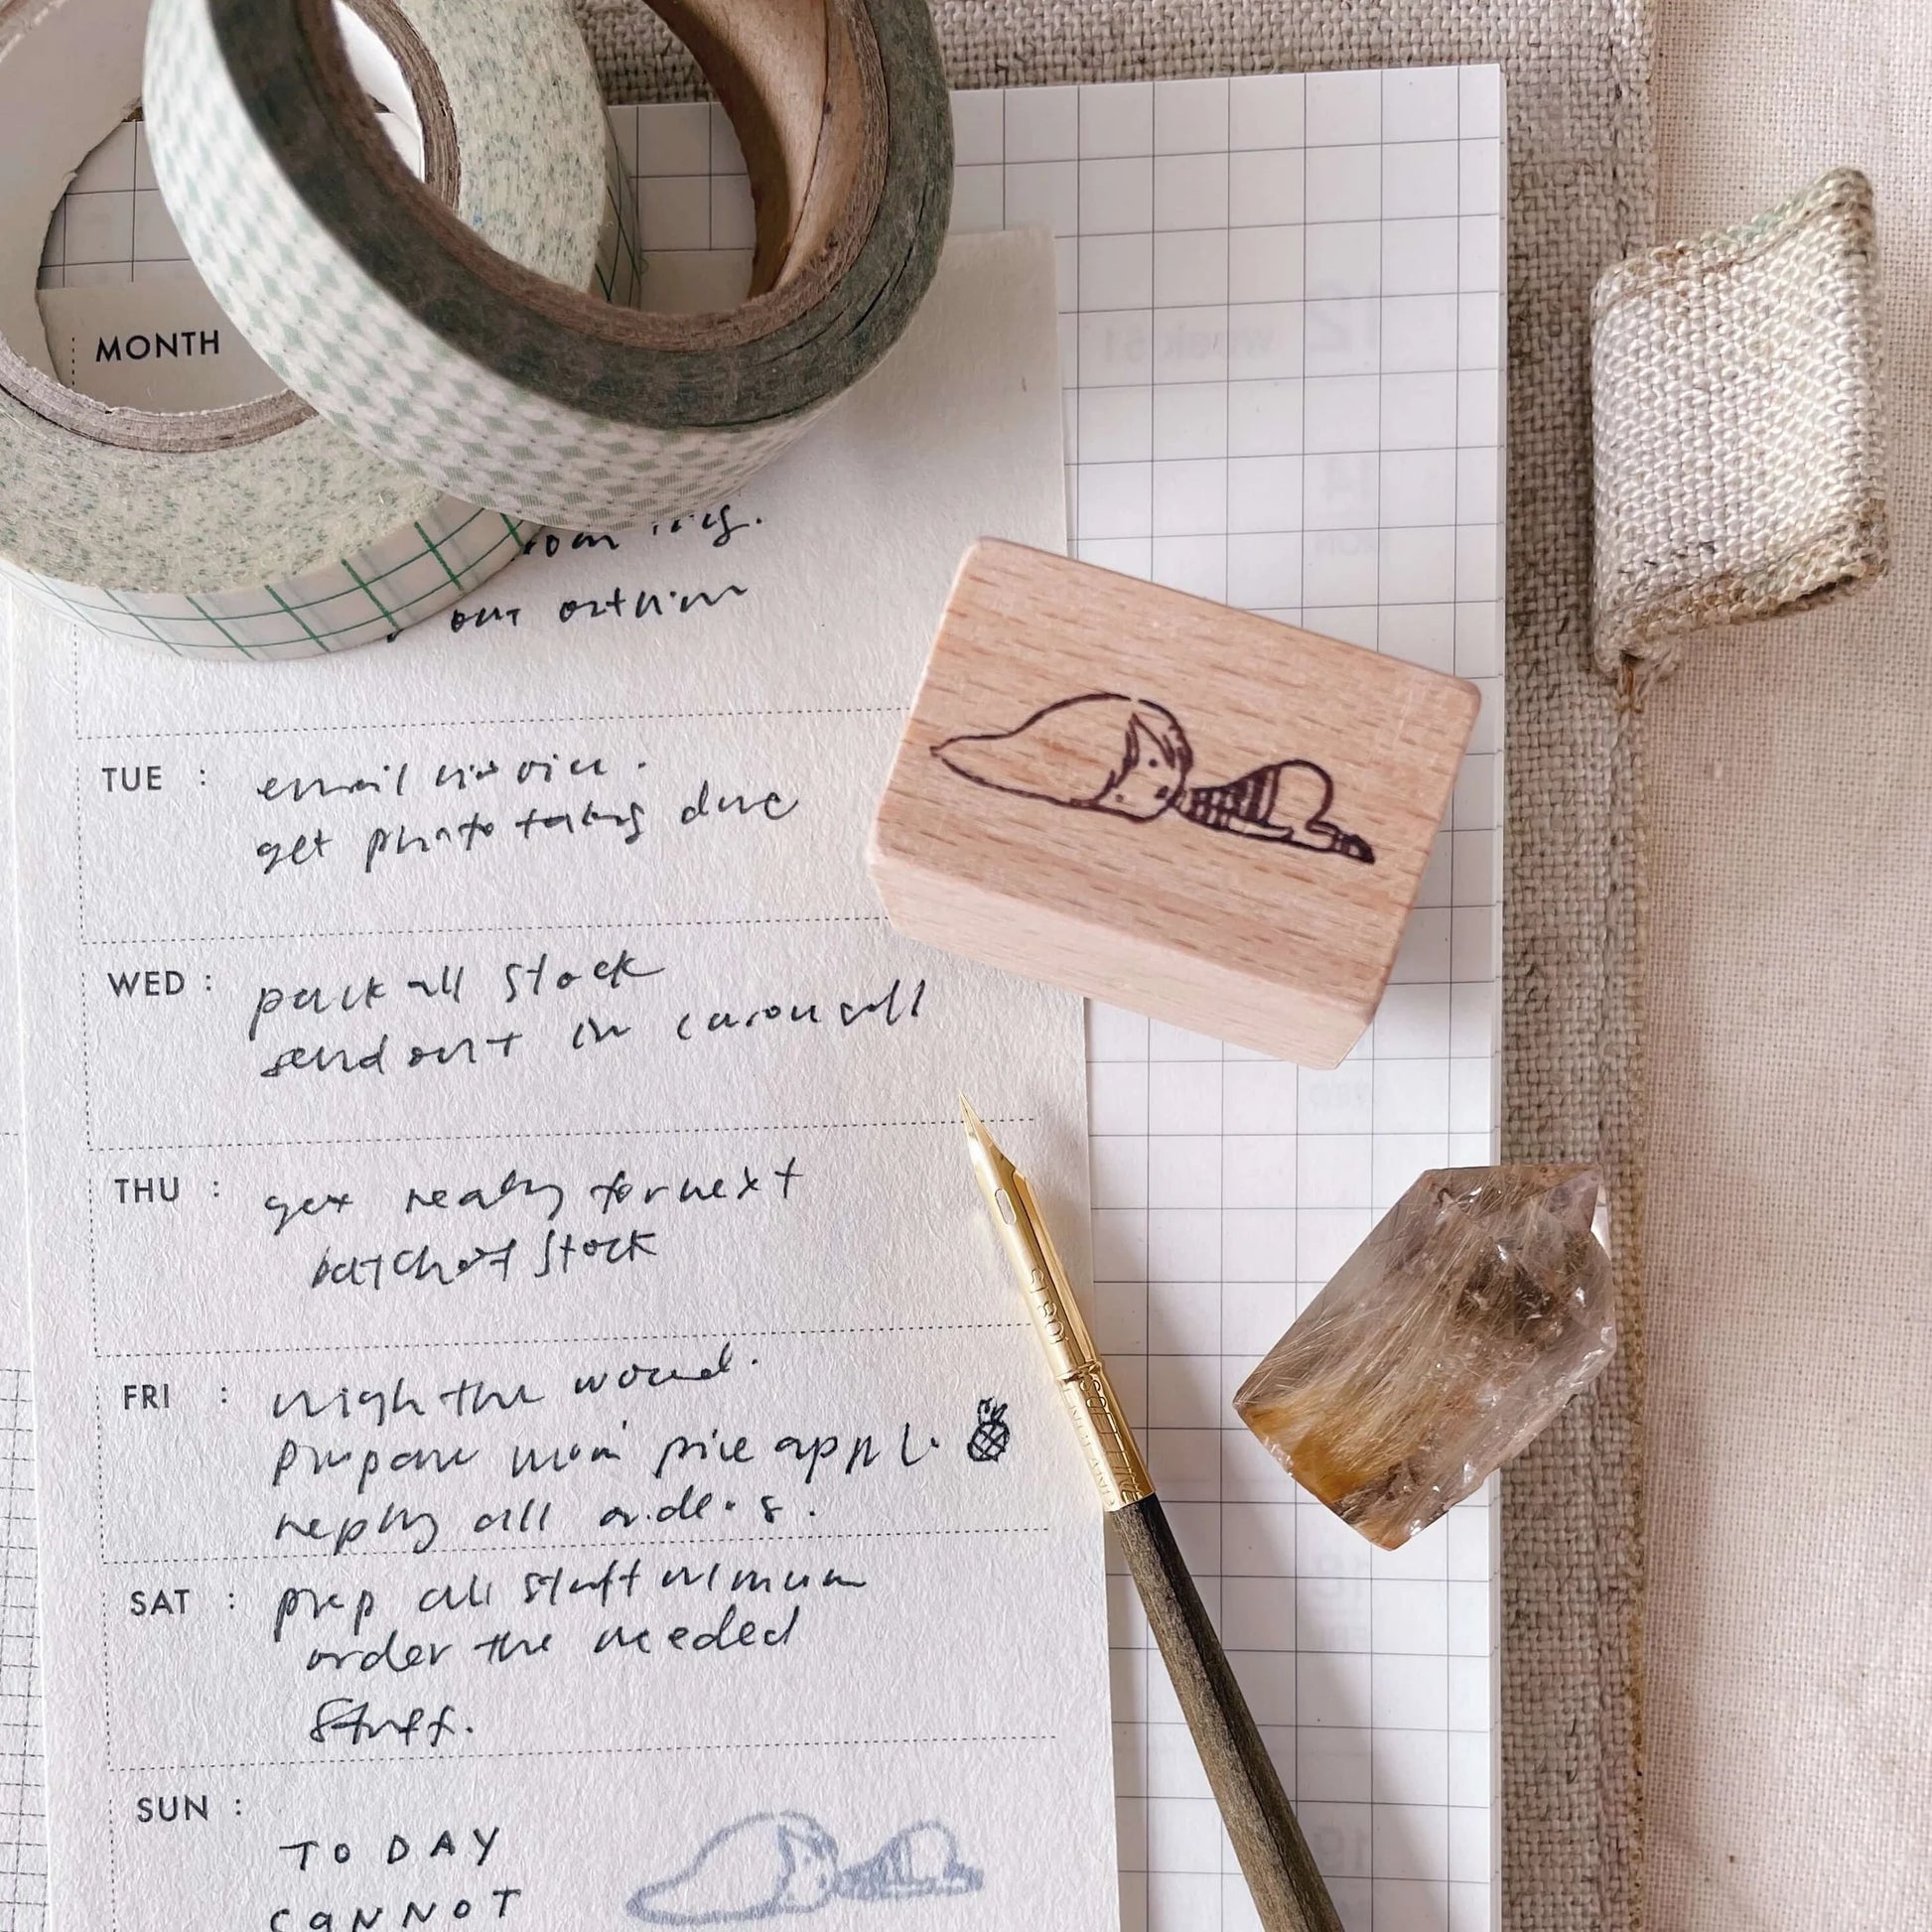 MONTH
out
TUE : email invoice.
get photo taking done
WED : pack all stock
send out in carousell
THU : get ready for next
batch of stock
FRI : weigh the wood.
prepare mom pineapple.
reply all orders.
SAT : prep all stuff
order the needed
stuff.
SUN :
TODAY
CANNOT
12 week 51
14
18
19